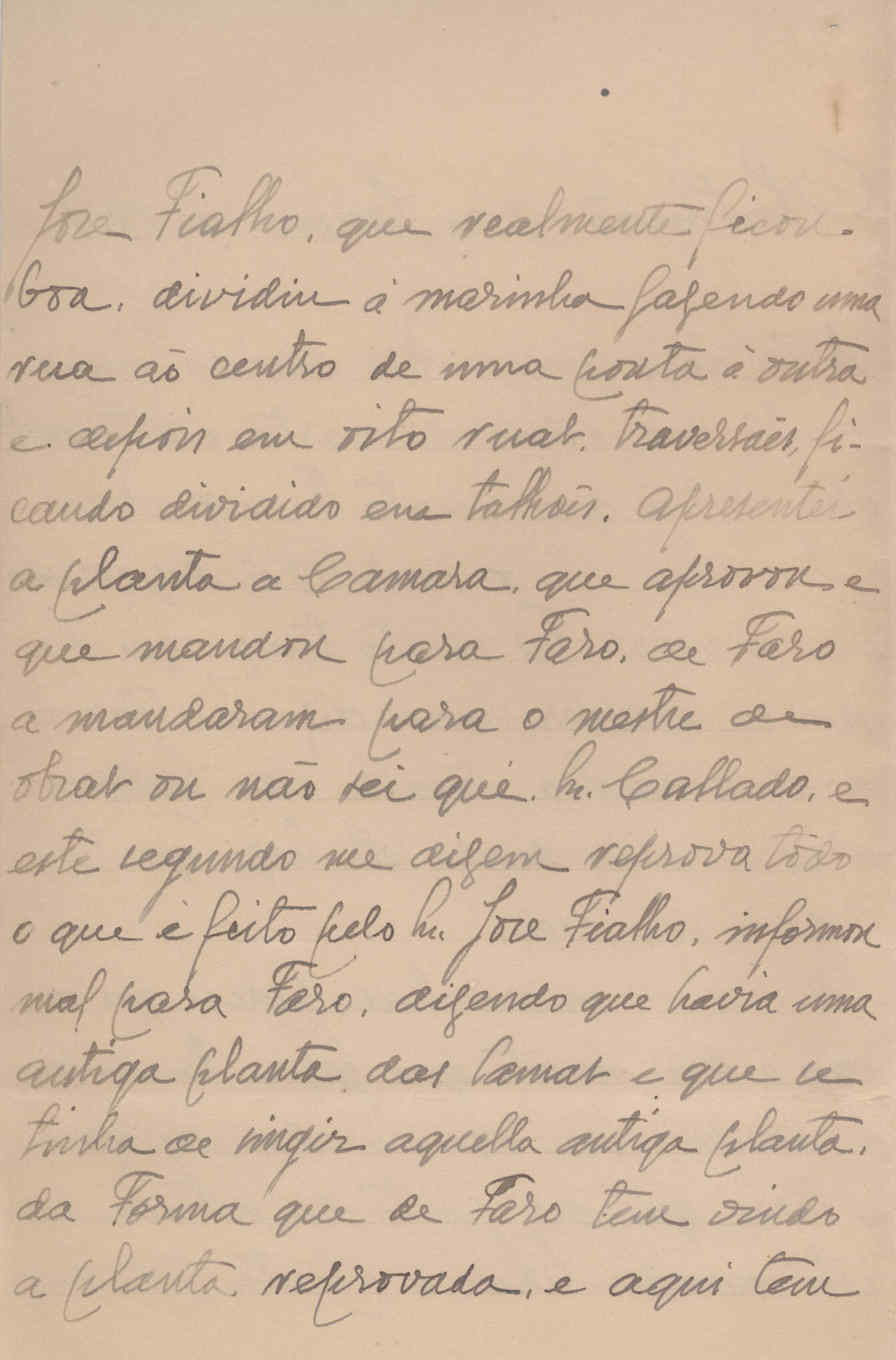 Jose Fialho, que realmente ficou
boa, dividiu á marinha fazendo uma
rua aõ centro de uma ponta á outra
e depois em oito ruas, traversaēs, fi-
cando dividido em talhoēs. Apresentei
a planta a Camara, que aprovou e
que mandou para Faro, de Faro
a mandaram para o mestre de
obras ou não sei quê, Sr. Callado, e
este segundo me dizem reprova tôdo
o que é feito pelo Sr. Jose Fialho, informou
mal para Faro, dizendo que havia uma
antiga planta das Camas e que se
tinha de singir aquella antiga planta,
da Forma que de Faro tem vindo
a planta reprovada, e aqui tem